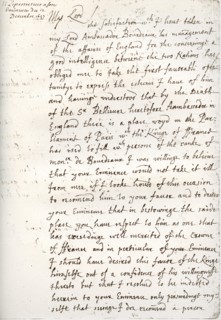 My Lord
the satisfaction wch I have taken in
my Lord Ambassador Bordeaux his management
of the affaires of England for the conserving a
good intelligence betweene the two Nations hath
obliged mee to take the first
to expresse the esteeme I have of him
and having understood that by the Death
of the Sr Bellievre heretofore Ambassador in
England there is a place voyd in the Par
liament of Paris wch the Kinge of France
has used to fill wth persons of the
monsr de Bordeaux I was willing to believe
that your Eminence would not take it ill
from mee if I tooke hould of this occasion
to recomend him to your favour and to desire
your Eminence that in bestowinge the saide
place you have respect to him as one that
has merited of the Crowne
of France and in particular of your Eminence
I should have desired this favour of the Kinge
himselfe out of a confidence of his willingnes
thereto but that I resolved to be indebted
herein to your Eminence only perswadinge my
selfe that I recomend a person